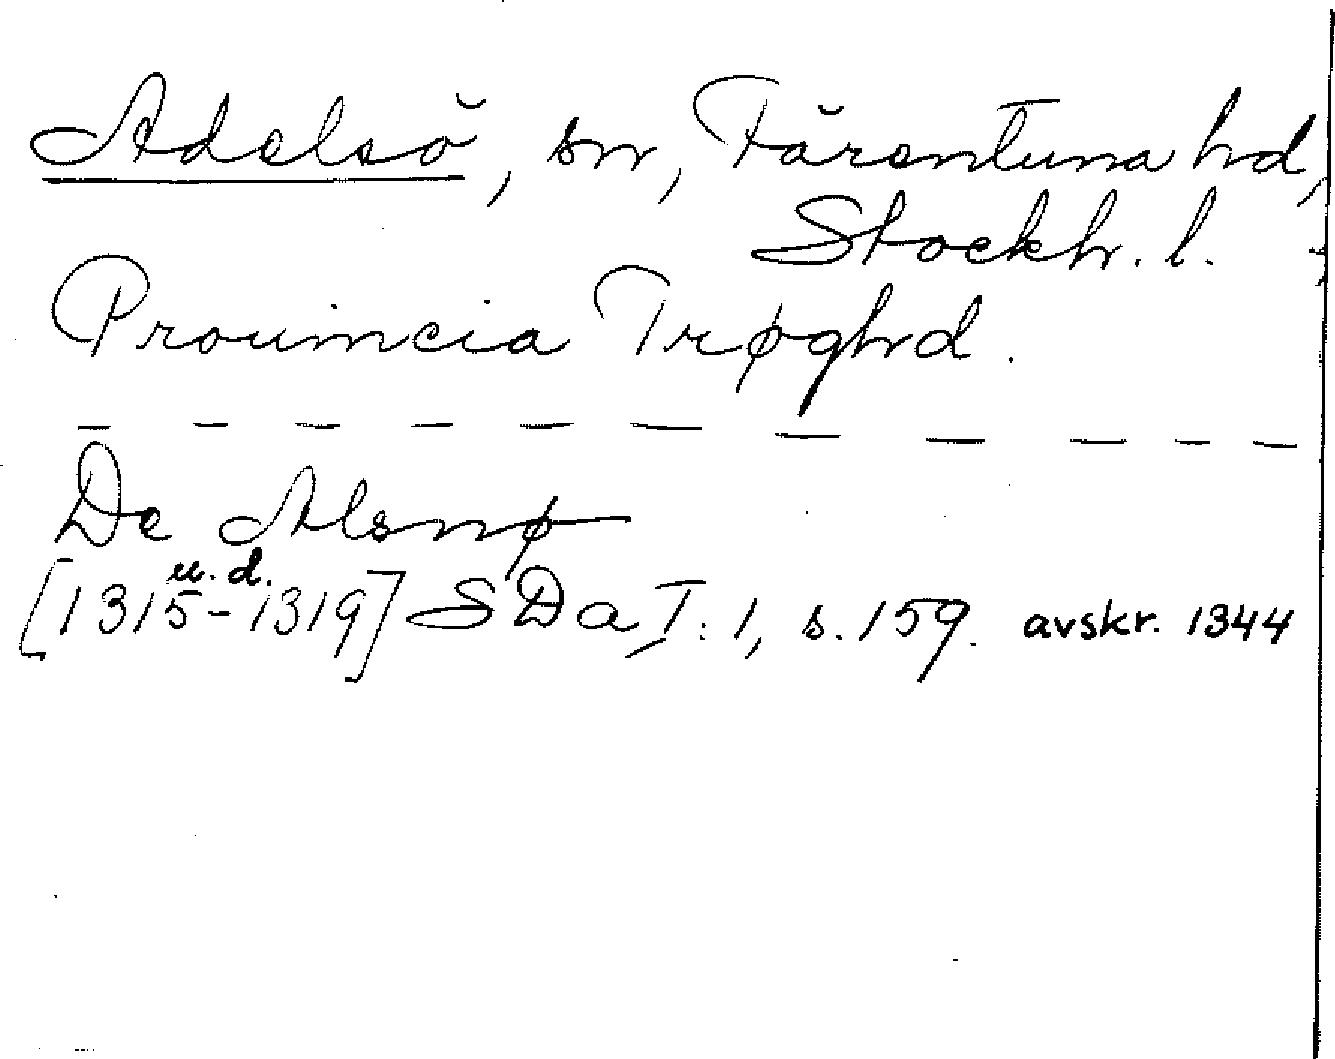 Adelsö, sn, Färentuna hd,
Stockh. l.
Prouincia Trøghd.
— — — — — — — — — — —
De Alsnø
u. d.
[1315-1319] SDa I: 1, s. 159. avskr. 1344